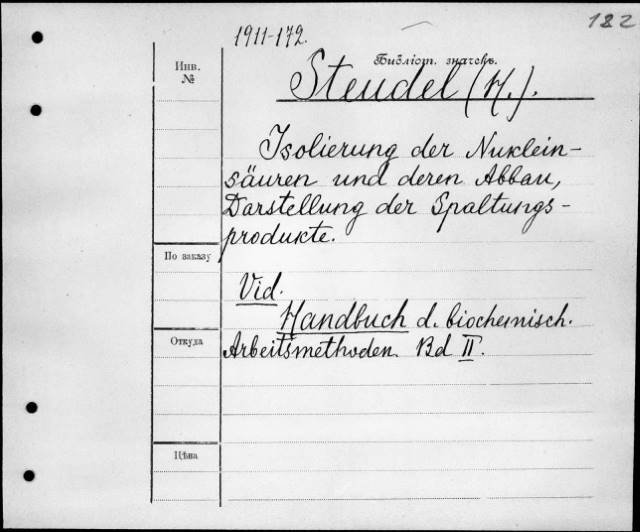 122
1911-172.
Инв.
№
Библіот. значекъ.
Steudel (H.).
Isolierung der Nuklein-
säuren und deren Abbau,
Darstellung der Spaltungs-
produkte.
По заказу
Vid.
Handbuch d. biochemisch.
Откуда
Arbeitsmethoden. Bd II.
Цѣна